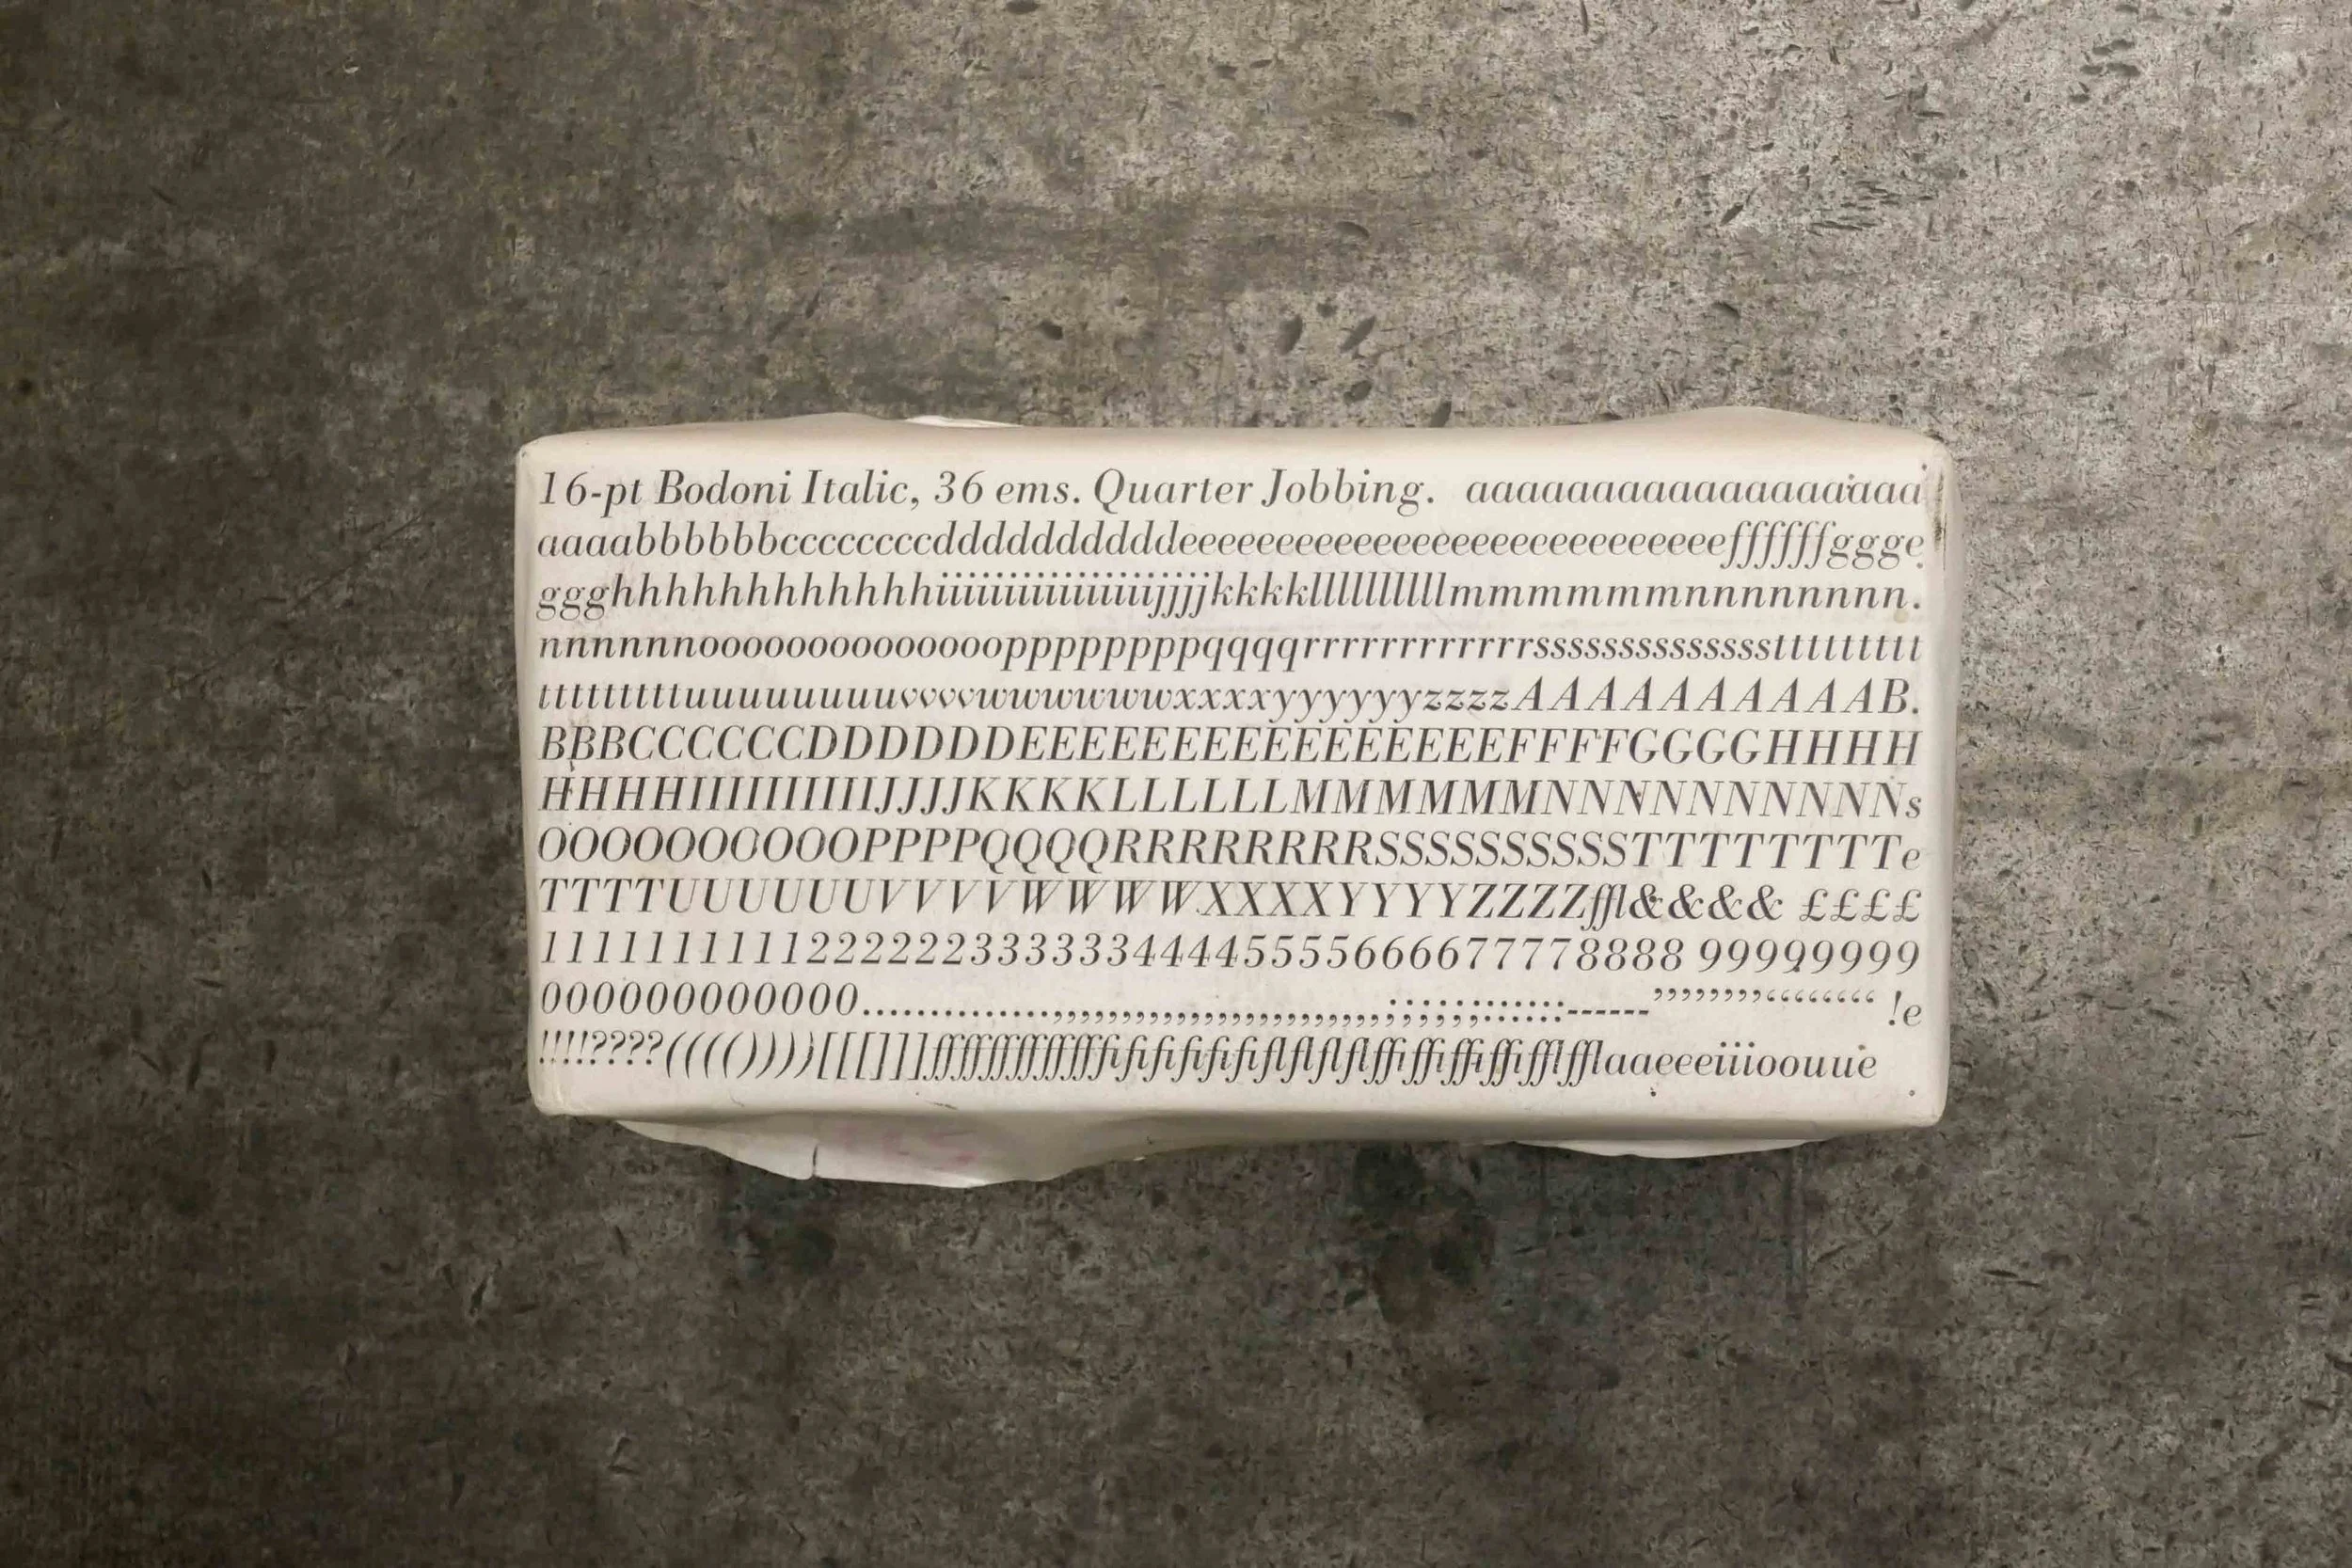 16-pt Bodoni Italic, 36 ems. Quarter Jobbing. aaaaaaaaaaaaaaaaaa
aaaabbbbbbccccccccddddddddddeeeeeeeeeeeeeeeeeeeeeeeeeeffffffggge
ggghhhhhhhhhhhhiiiiiiiiiiiiiiiijjjjkkkkllllllllllmmmmmmnnnnnnnnn.
nnnnnnnooooooooooooooppppppppqqqqrrrrrrrrrrrrssssssssssssssstttttttttt
ttttttttttuuuuuuuuuvvvvwwwwwwxxxxyyyyyyzzzzAAAAAAAAAAB.
BBBCCCCCCDDDDDDEEEEEEEEEEEEEEEEFFFFGGGGHHHH
HHHHIIIIIIIIIIIIJJJJKKKKLLLLLLMMMMMMNNNNNNNNNNs
OOOOOOOOOOPPPPQQQQRRRRRRRRSSSSSSSSSSTTTTTTTTe
TTTTUUUUUUVVVVWWWWXXXXYYYYZZZZffl&&&& ££££
111111111122222233333344445555666677778888 99999999
000000000000..............,,,,,,,,,,,,,,,,,,,,,,,,;;;;;;::::::------’’’’’’’’‘‘‘‘‘‘‘‘ !e
!!!!????(((())))[[[]]]fffffffffffffffffffffifififififiﬂﬂﬂﬂffiffiffiffifflfflaaeeeiiioouue